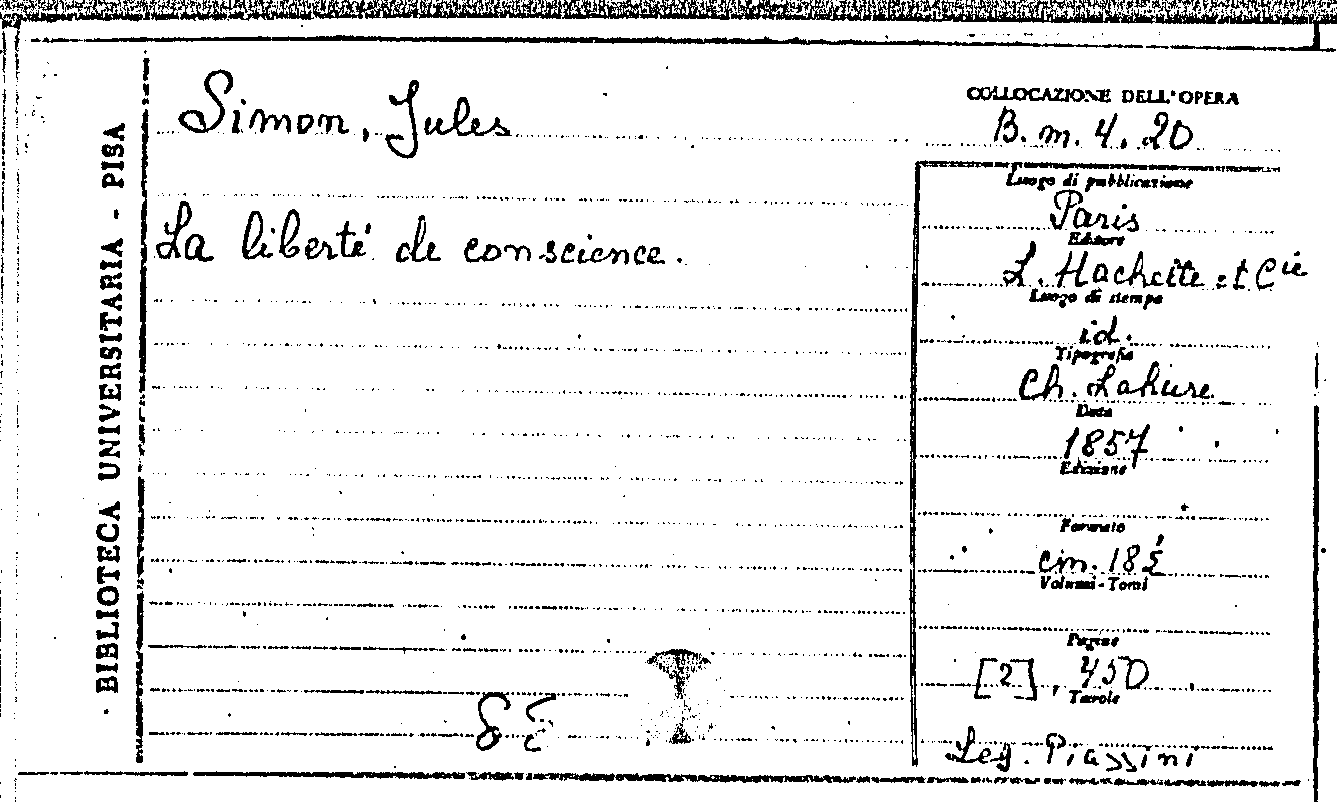 BIBLIOTECA UNIVERSITARIA - PISA
Simon, Jules
La liberté de conscience.
COLLOCAZIONE DELL'OPERA
B. m. 4. 20
Luogo di pubblicazione
Paris
Editore
L. Hachette et Cie
Luogo di stampa
id.
Tipografia
Ch. Lahure
Data
1857
Edizione
Formato
cm. 18
Volumi - Tomi
Pagine
[2], 450
Tavole
Leg. Piazzini